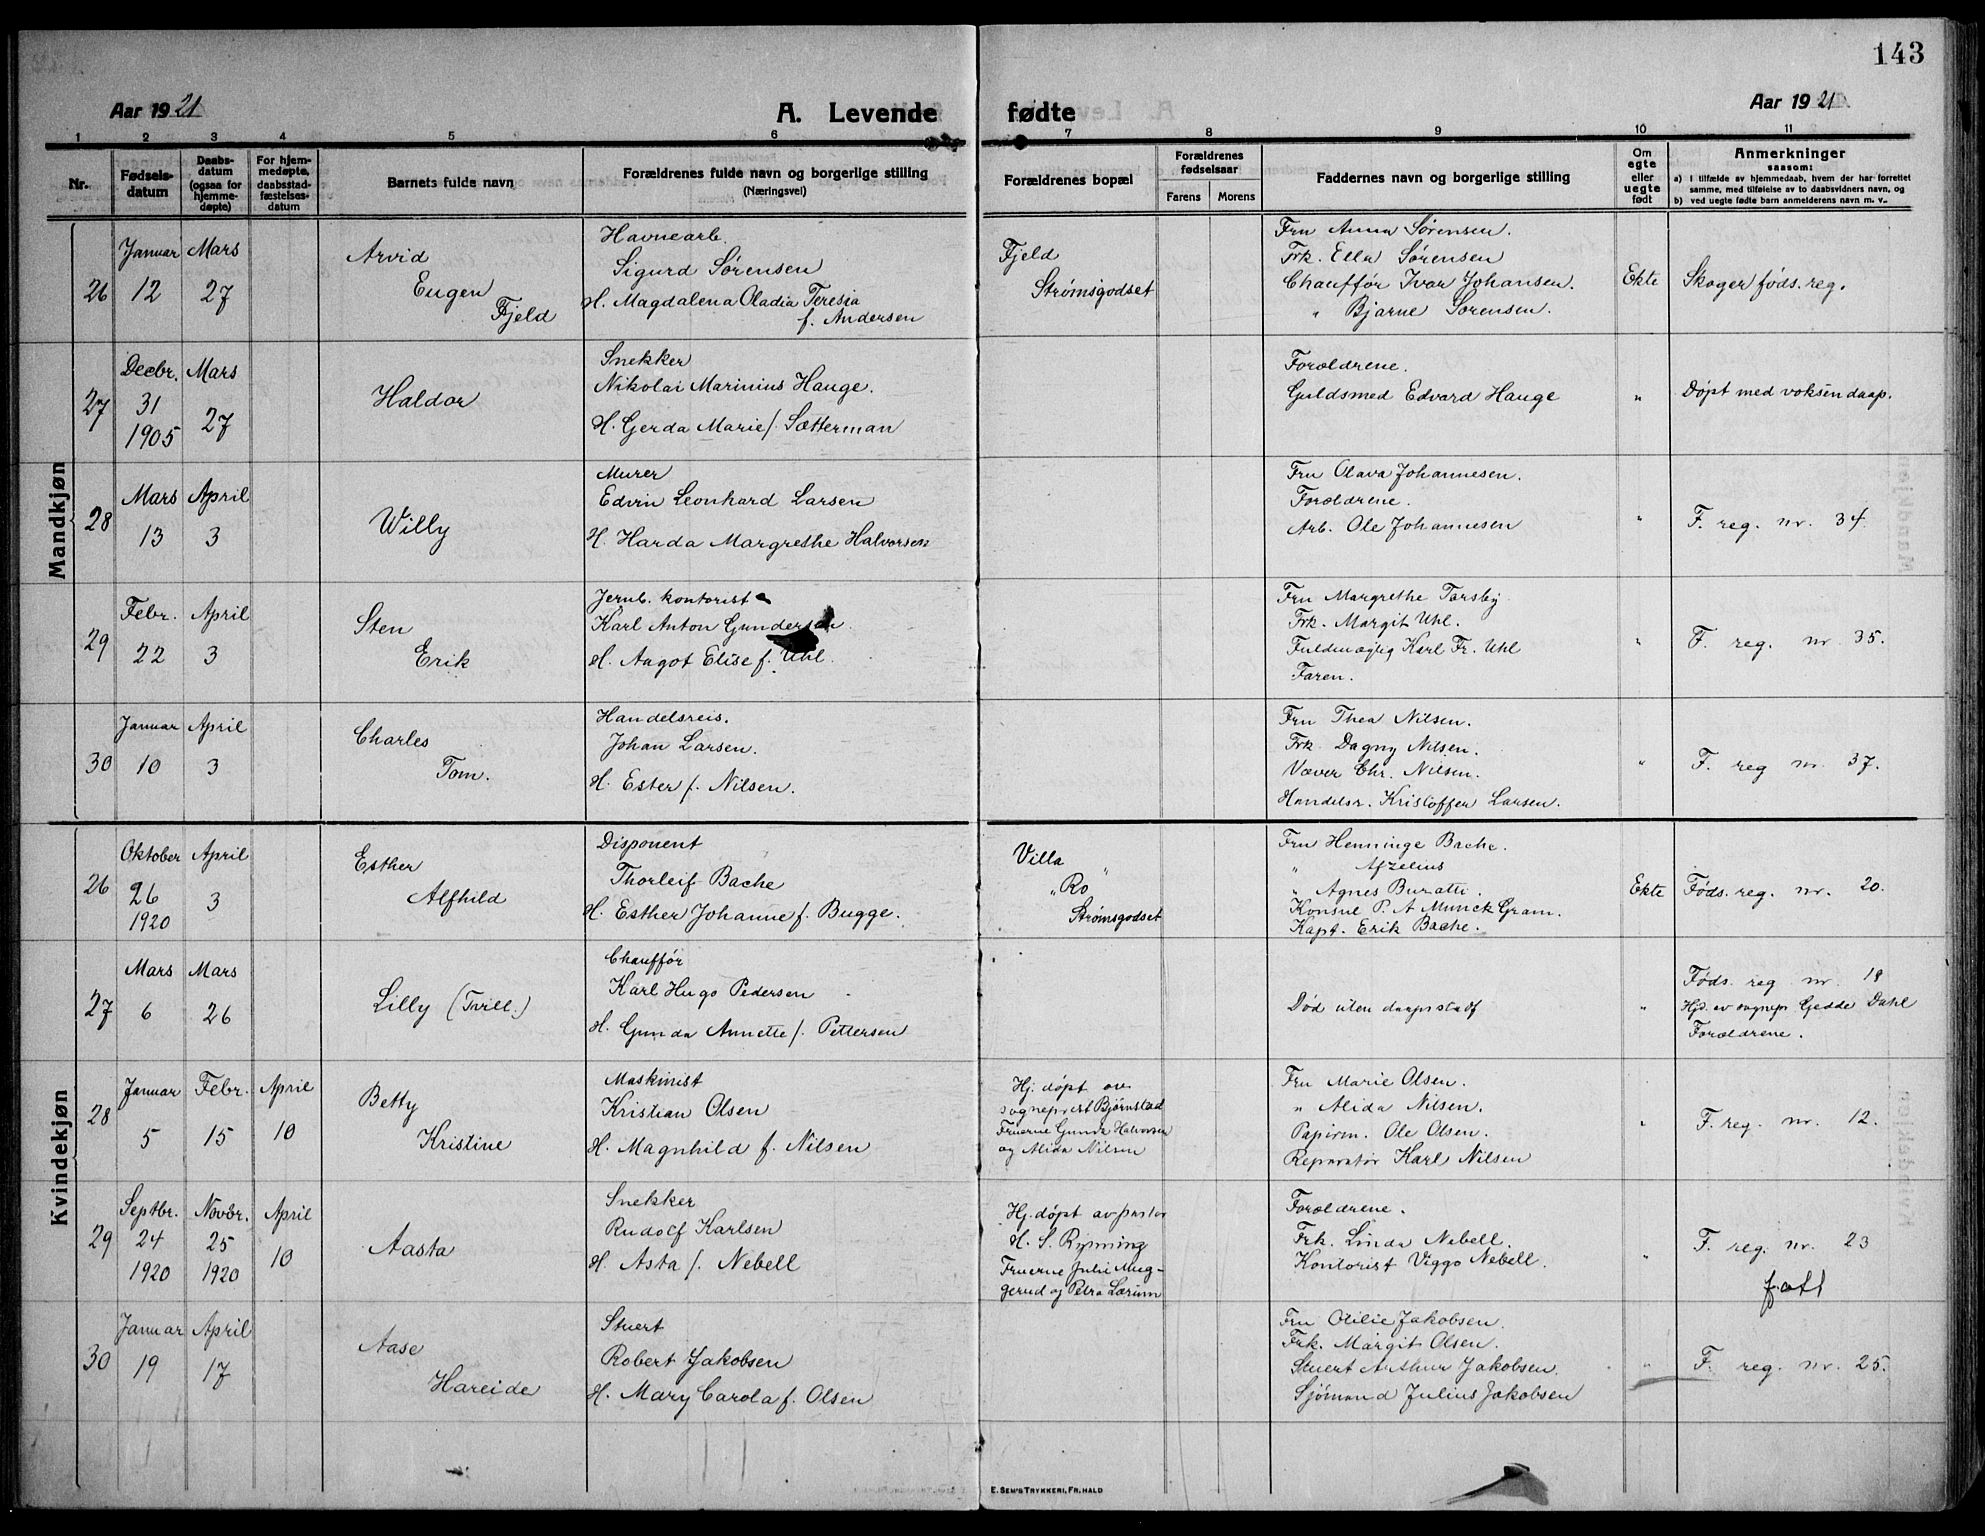 143
Aar 1921 A. Levende fødte Aar 1921
1 2 3 4 5 6 7 8 9 10 11
Nr.
Fødsels-
datum
Daabs-
datum
(ogsaa for
hjemme-
døpte)
For hjem-
medøpte,
daabsstad-
fæstelses-
datum
Barnets fulde navn
Forældrenes fulde navn og borgerlige stilling
(Næringsvei)
Forældrenes bopæl
Forældrenes
fødselsaar
Farens Morens
Faddernes navn og borgerlige stilling
Om
egte
eller
uegte
født
Anmerkninger
saasom:
a) I tilfælde av hjemmedaab, hvem der har forrettet
samme, med tilføielse av to daabsvidners navn, og
b) ved uegte fødte barn anmelderens navn m. v.
Mandkjøn
26
Januar
12
Mars
27
Arvid
Eugen
Fjeld
Havnearb.
Sigurd Sørensen
H. Magdalena Oladia Teresia
f. Andersen
Fjeld
Strømsgodset
Fru Anna Sørensen.
Frk. Ella Sørensen
Chauffør Ivar Johansen.
" Bjarne Sørensen.
Ekte
Skoger føds. reg.
27
Decbr.
31
1905
Mars
27
Haldor
Snekker
Nikolai Marinius Hauge.
H. Gerda Marie f. Sætterman
Forældrene.
Guldsmed Edvard Hauge
"
Døpt med voksendaap.
28
Mars
13
April
3
Willy
Murer
Edvin Leonhard Larsen
H. Harda Margrethe Halvorsen
Fru Olava Johannesen.
Forældrene.
Arb. Ole Johannesen
"
F. reg. nr. 34.
29
Febr.
22
April
3
Sten
Erik
Jernb. kontorist
Karl Anton Gundersen.
H. Aagot Elise f. Uhl.
Fru Margrethe Torsby
Frk. Margit Uhl.
Fuldmægtig Karl Fr. Uhl
Faren.
"
F. reg. nr 35.
30
Januar
10
April
3
Charles
Tom.
Handelsreis.
Johan Larsen.
H. Ester f. Nilsen.
Fru Thea Nilsen.
Frk. Dagny Nilsen.
Væver Chr. Nilsen.
Handelsr. Kristoffer Larsen.
"
F. reg nr. 37.
Kvindekjøn
26
Oktober
26
1920
April
3
Esther
Alfhild
Disponent
Thorleif Bache
H. Esther Johanne f. Bugge.
Villa
"Ro"
Strømsgodset
Fru Henninge Bache.
" Afzelius
" Agnes Buratti.
Konsul P. A Munck Gram.
Kapt. Erik Bache.
Ekte
Føds. reg. nr. 20.
27
Mars
6
Mars
26
Lilly (Tvill.)
Chauffør
Karl Hugo Pedersen
H. Gunda Annette f. Pettersen
Død uten daapsstadf
"
Føds. reg nr. 19
Hjd. av sognep. Gedde Dahl
Forældrene.
28
Januar
5
Febr.
15
April
10
Betty
Kristine
Maskinist
Kristian Olsen
H. Magnhild f. Nilsen
Hj. døpt av
sogneprest Bjørnstad
Fruerne Gunda Halvorsen
og Alida Nilsen
Fru Marie Olsen.
" Alida Nilsen.
Papirm. Ole Olsen.
Reparatør Karl Nilsen
"
F. reg. nr. 12.
29
Septbr.
24
1920
Novbr.
25
1920
April
10
Aasta
Snekker
Rudolf Karlsen
H. Asta f. Nebell
Hj. døpt av pastor
H. S. Rynning
Fruerne Julie Mug-
gerud og Petra Lærum
Forældrene.
Frk. Linda Nebell.
Kontorist Viggo Nebell.
"
F. reg. nr. 23
30
Januar
19
April
17
Aase
Hareide
Stuert
Robert Jakobsen
H. Mary Carola f. Olsen
Fru Otilie Jakobsen.
Frk. Margit Olsen.
Stuert Arthur Jakobsen.
Sjømand Julius Jakobsen
"
F. reg. nr. 25.
E. SEM'S TRYKKERI, FR.HALD